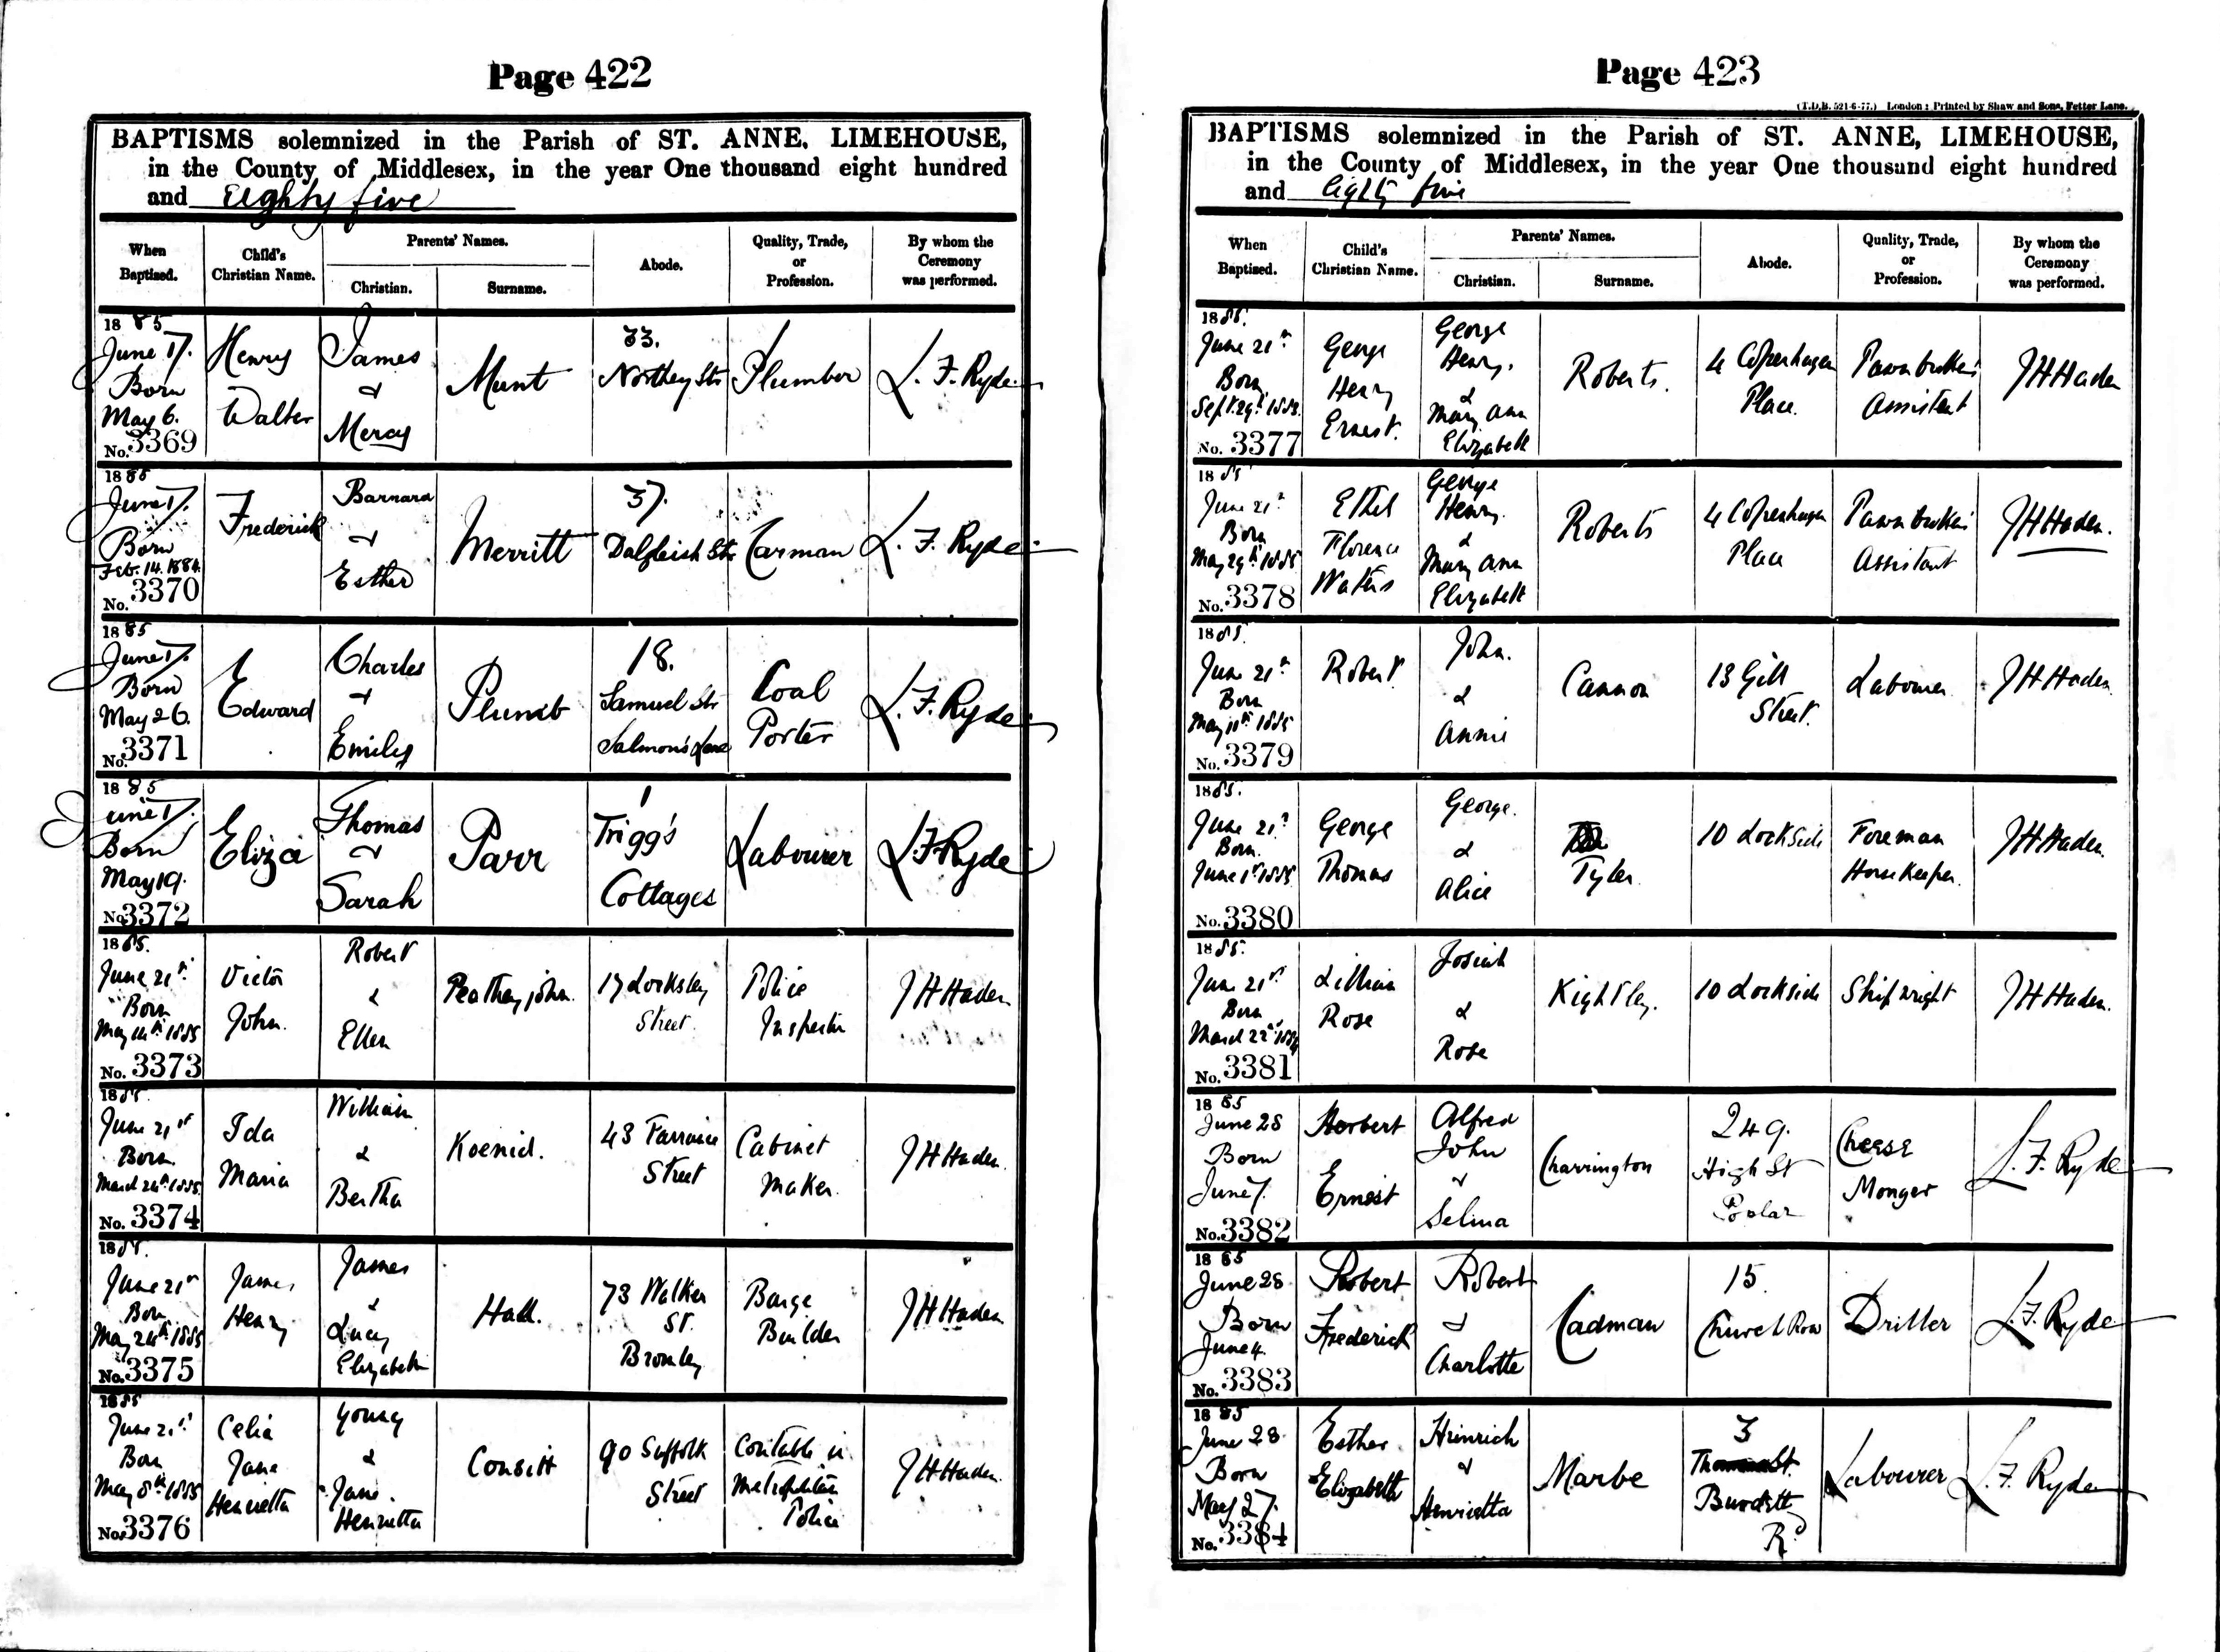 Page 422
BAPTISMS solemnized in the Parish of ST. ANNE, LIMEHOUSE,
in the County of Middlesex, in the year One thousand eight hundred
and Eighty five
When Baptized.
Child's Christian Name.
Parents' Names.
Christian.
Surname.
Abode.
Quality, Trade, or Profession.
By whom the Ceremony was performed.
1885 June 17. Born May 6. No. 3369
Henry Walter
James & Mercy
Munt
33. Northey Str
Plumber
L. F. Ryde
1885 June 17. Born Feb. 14. 1884. No. 3370
Frederick
Barnard & Esther
Merritt
37. Dalgleish Str
Carman
L. F. Ryde
1885 June 17. Born May 26. No. 3371
Edward
Charles & Emily
Plumb
18. Samuel Str Salmon's Lane
Coal Porter
L. F. Ryde
1885 June 17. Born May 19. No. 3372
Eliza
Thomas & Sarah
Parr
1 Trigg's Cottages
Labourer
L. F. Ryde
1885. June 21st Born May 14th 1885 No. 3373
Victor John.
Robert & Ellen
Peatheyjohn.
17 Locksley Street.
Police Inspector
J H Haden
1885. June 21st Born March 24th 1885. No. 3374
Ida Maria
William & Bertha
Koenid.
43 Farrance Street
Cabinet Maker.
J H Haden.
1885. June 21st Born May 24th 1885 No. 3375
James Henry
James & Lucy Elizabeth
Hall.
73 Walker St. Bromley
Barge Builder
J H Haden.
1885 June 21st Born May 8th 1885 No. 3376
Celia Jane Henrietta
Young & Jane Henrietta
Consitt
90 Suffolk Street
Constable in Metropolitan Police
J H Haden.
Page 423
(T.D.B. 521-6-77.) London: Printed by Shaw and Sons, Fetter Lane.
BAPTISMS solemnized in the Parish of ST. ANNE, LIMEHOUSE,
in the County of Middlesex, in the year One thousand eight hundred
and Eighty five
When Baptized.
Child's Christian Name.
Parents' Names.
Christian.
Surname.
Abode.
Quality, Trade, or Profession.
By whom the Ceremony was performed.
1885. June 21st Born Sept. 29th No. 3377
George Henry Ernest.
George Henry. & Mary Ann Elizabeth
Roberts.
4 Copenhagen Place.
Pawnbroker's Assistant
J H Haden
1885 June 21st Born May 29th 1885 No. 3378
Ethel Florence Waters
George Henry. & Mary Ann Elizabeth
Roberts
4 Copenhagen Place
Pawnbroker's Assistant
J H Haden.
1885. June 21st Born May 11th 1885 No. 3379
Robert
John. & Annie
Cannon
13 Gill Street.
Labourer
J H Haden.
1885. June 21st Born June 1st 1885 No. 3380
George Thomas
George. & Alice
Tyler.
10 Lockside
Foreman Horsekeeper.
J H Haden.
1885. June 21st Born March 22nd No. 3381
Lillian Rose
Josiah & Rose
Kightley.
10 Lockside
Shipwright
J H Haden.
1885 June 28 Born June 7. No. 3382
Herbert Ernest
Alfred John & Selina
Charrington
249. High St Poplar
Cheese Monger
L. F. Ryde
1885 June 28 Born June 4. No. 3383
Robert Frederick
Robert & Charlotte
Cadman
15 Church Row
Driller
L. F. Ryde
1885 June 28 Born May 27. No. 3384
Esther Elizabeth
Hinrich & Henrietta
Marbe
3 Thomas St. Burdett Rd
Labourer
L. F. Ryde